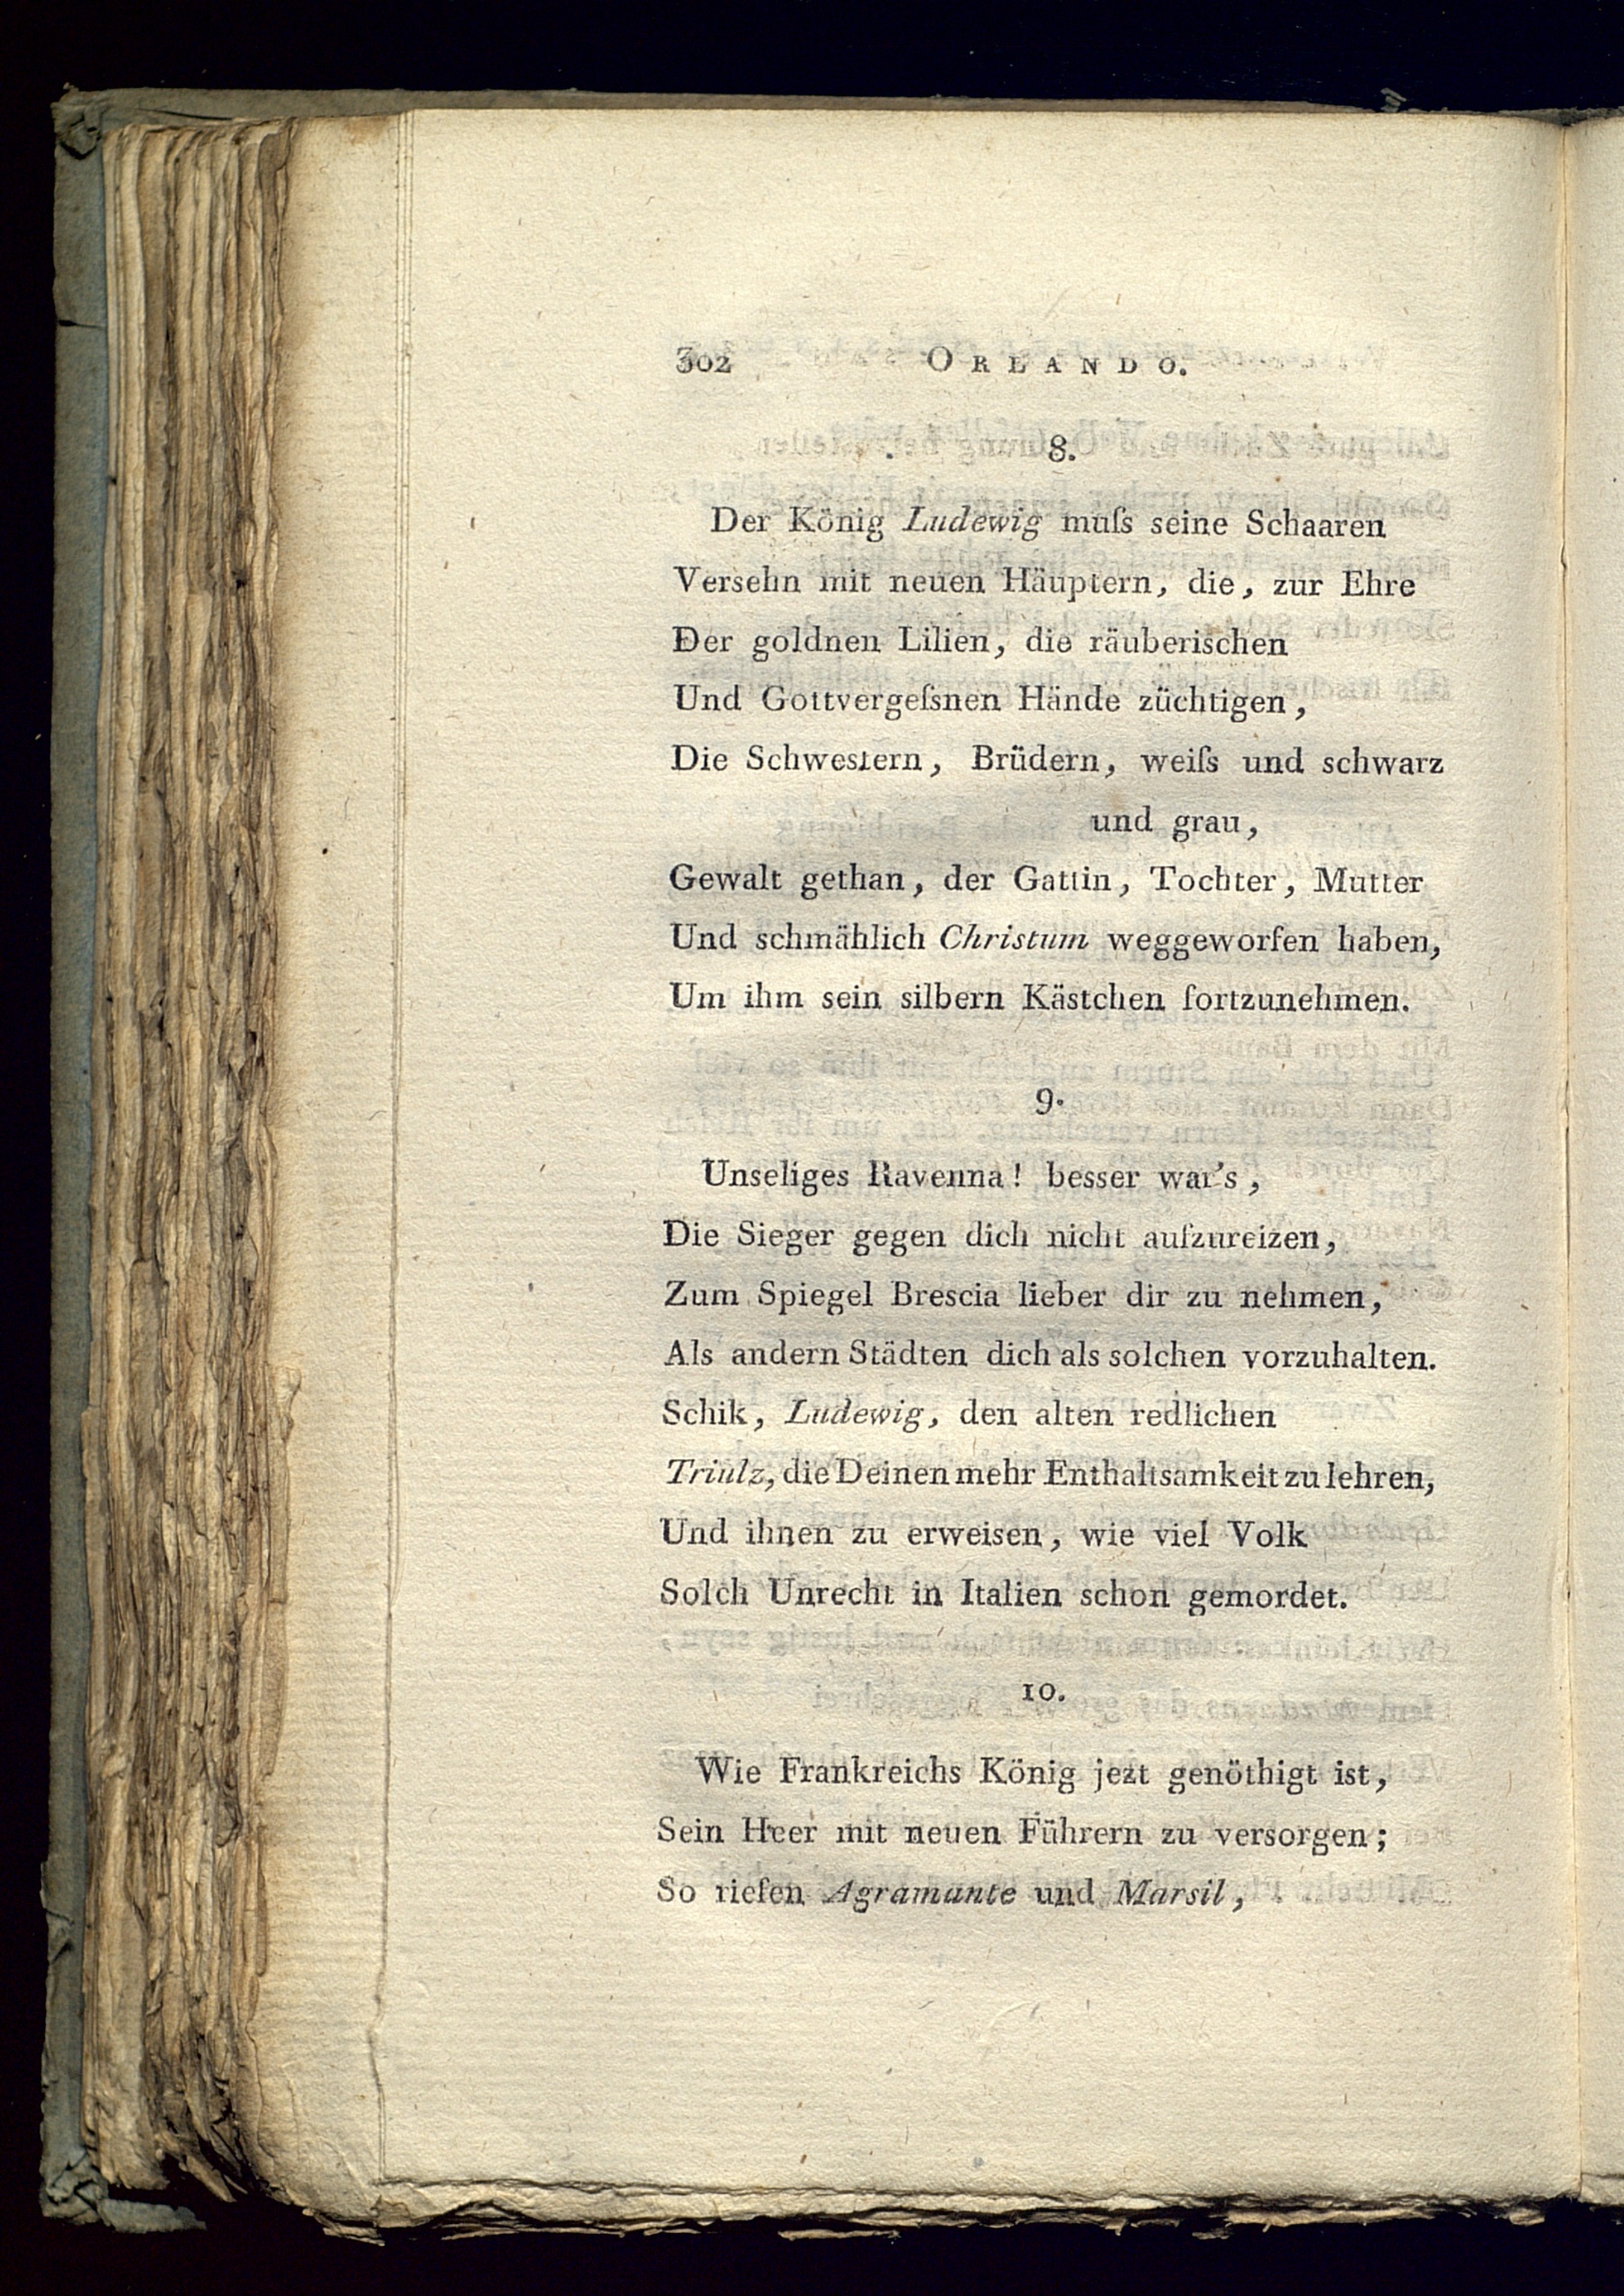 302 ORLANDO.
8.
Der König Ludewig muſs seine Schaaren
Versehn mit neuen Häuptern, die, zur Ehre
Der goldnen Lilien, die räuberischen
Und Gottvergeſsnen Hände züchtigen,
Die Schwestern, Brüdern, weiſs und schwarz
und grau,
Gewalt gethan, der Gattin, Tochter, Mutter
Und schmählich Christum weggeworfen haben,
Um ihm sein silbern Kästchen fortzunehmen.
9.
Unseliges Ravenna! besser war's,
Die Sieger gegen dich nicht aufzureizen,
Zum Spiegel Brescia lieber dir zu nehmen,
Als andern Städten dich als solchen vorzuhalten.
Schik, Ludewig, den alten redlichen
Triulz, die Deinen mehr Enthaltsamkeit zu lehren,
Und ihnen zu erweisen, wie viel Volk
Solch Unrecht in Italien schon gemordet.
10.
Wie Frankreichs König jezt genöthigt ist,
Sein Heer mit neuen Führern zu versorgen;
So riefen Agramante und Marsil,